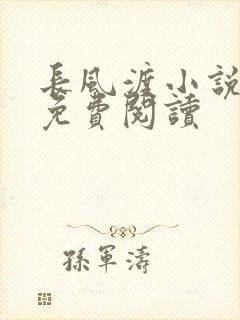 長風渡小説
免費閱讀
孫軍濤